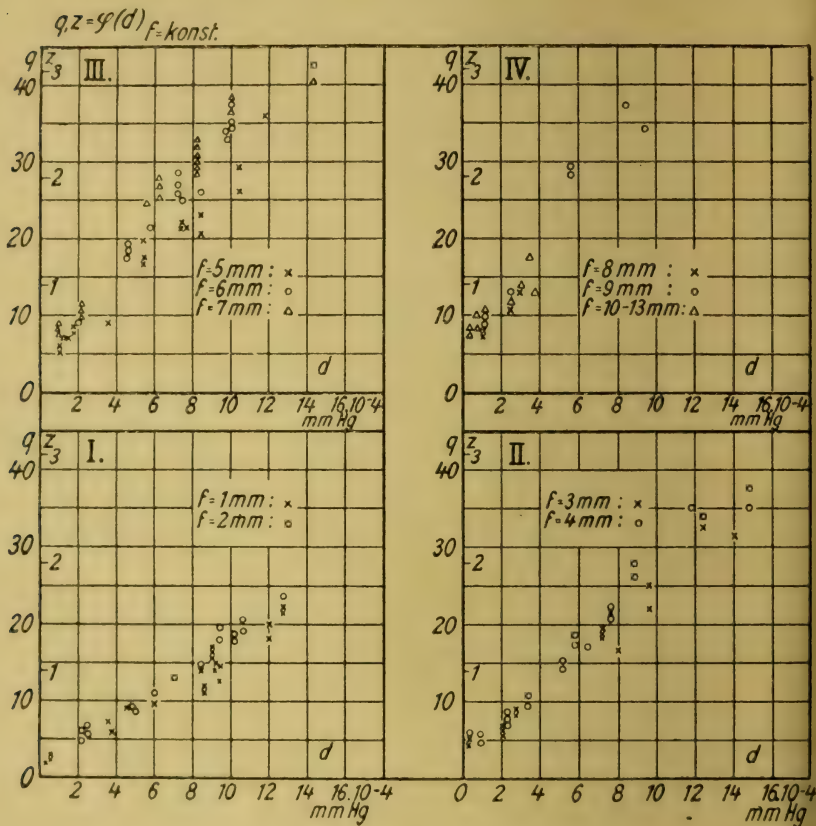 q,z=φ(d) f=konst.
q z III.
3
40
30
2
20
1
10
0
f=5mm: ×
f=6mm: ○
f=7mm: △
d
2 4 6 8 10 12 14 16.10-4
mm Hg
q z IV.
3
40
30
2
20
1
10
0
f=8mm: ×
f=9mm: ○
f=10-13mm: △
d
2 4 6 8 10 12 14 16.10-4
mm Hg
q z I.
3
40
30
2
20
1
10
0
f=1mm: ×
f=2mm: ○
d
2 4 6 8 10 12 14 16.10-4
mm Hg
q z II.
3
40
30
2
20
1
10
f=3mm: ×
f=4mm: ○
d
0 2 4 6 8 10 12 14 16.10-4
mm Hg